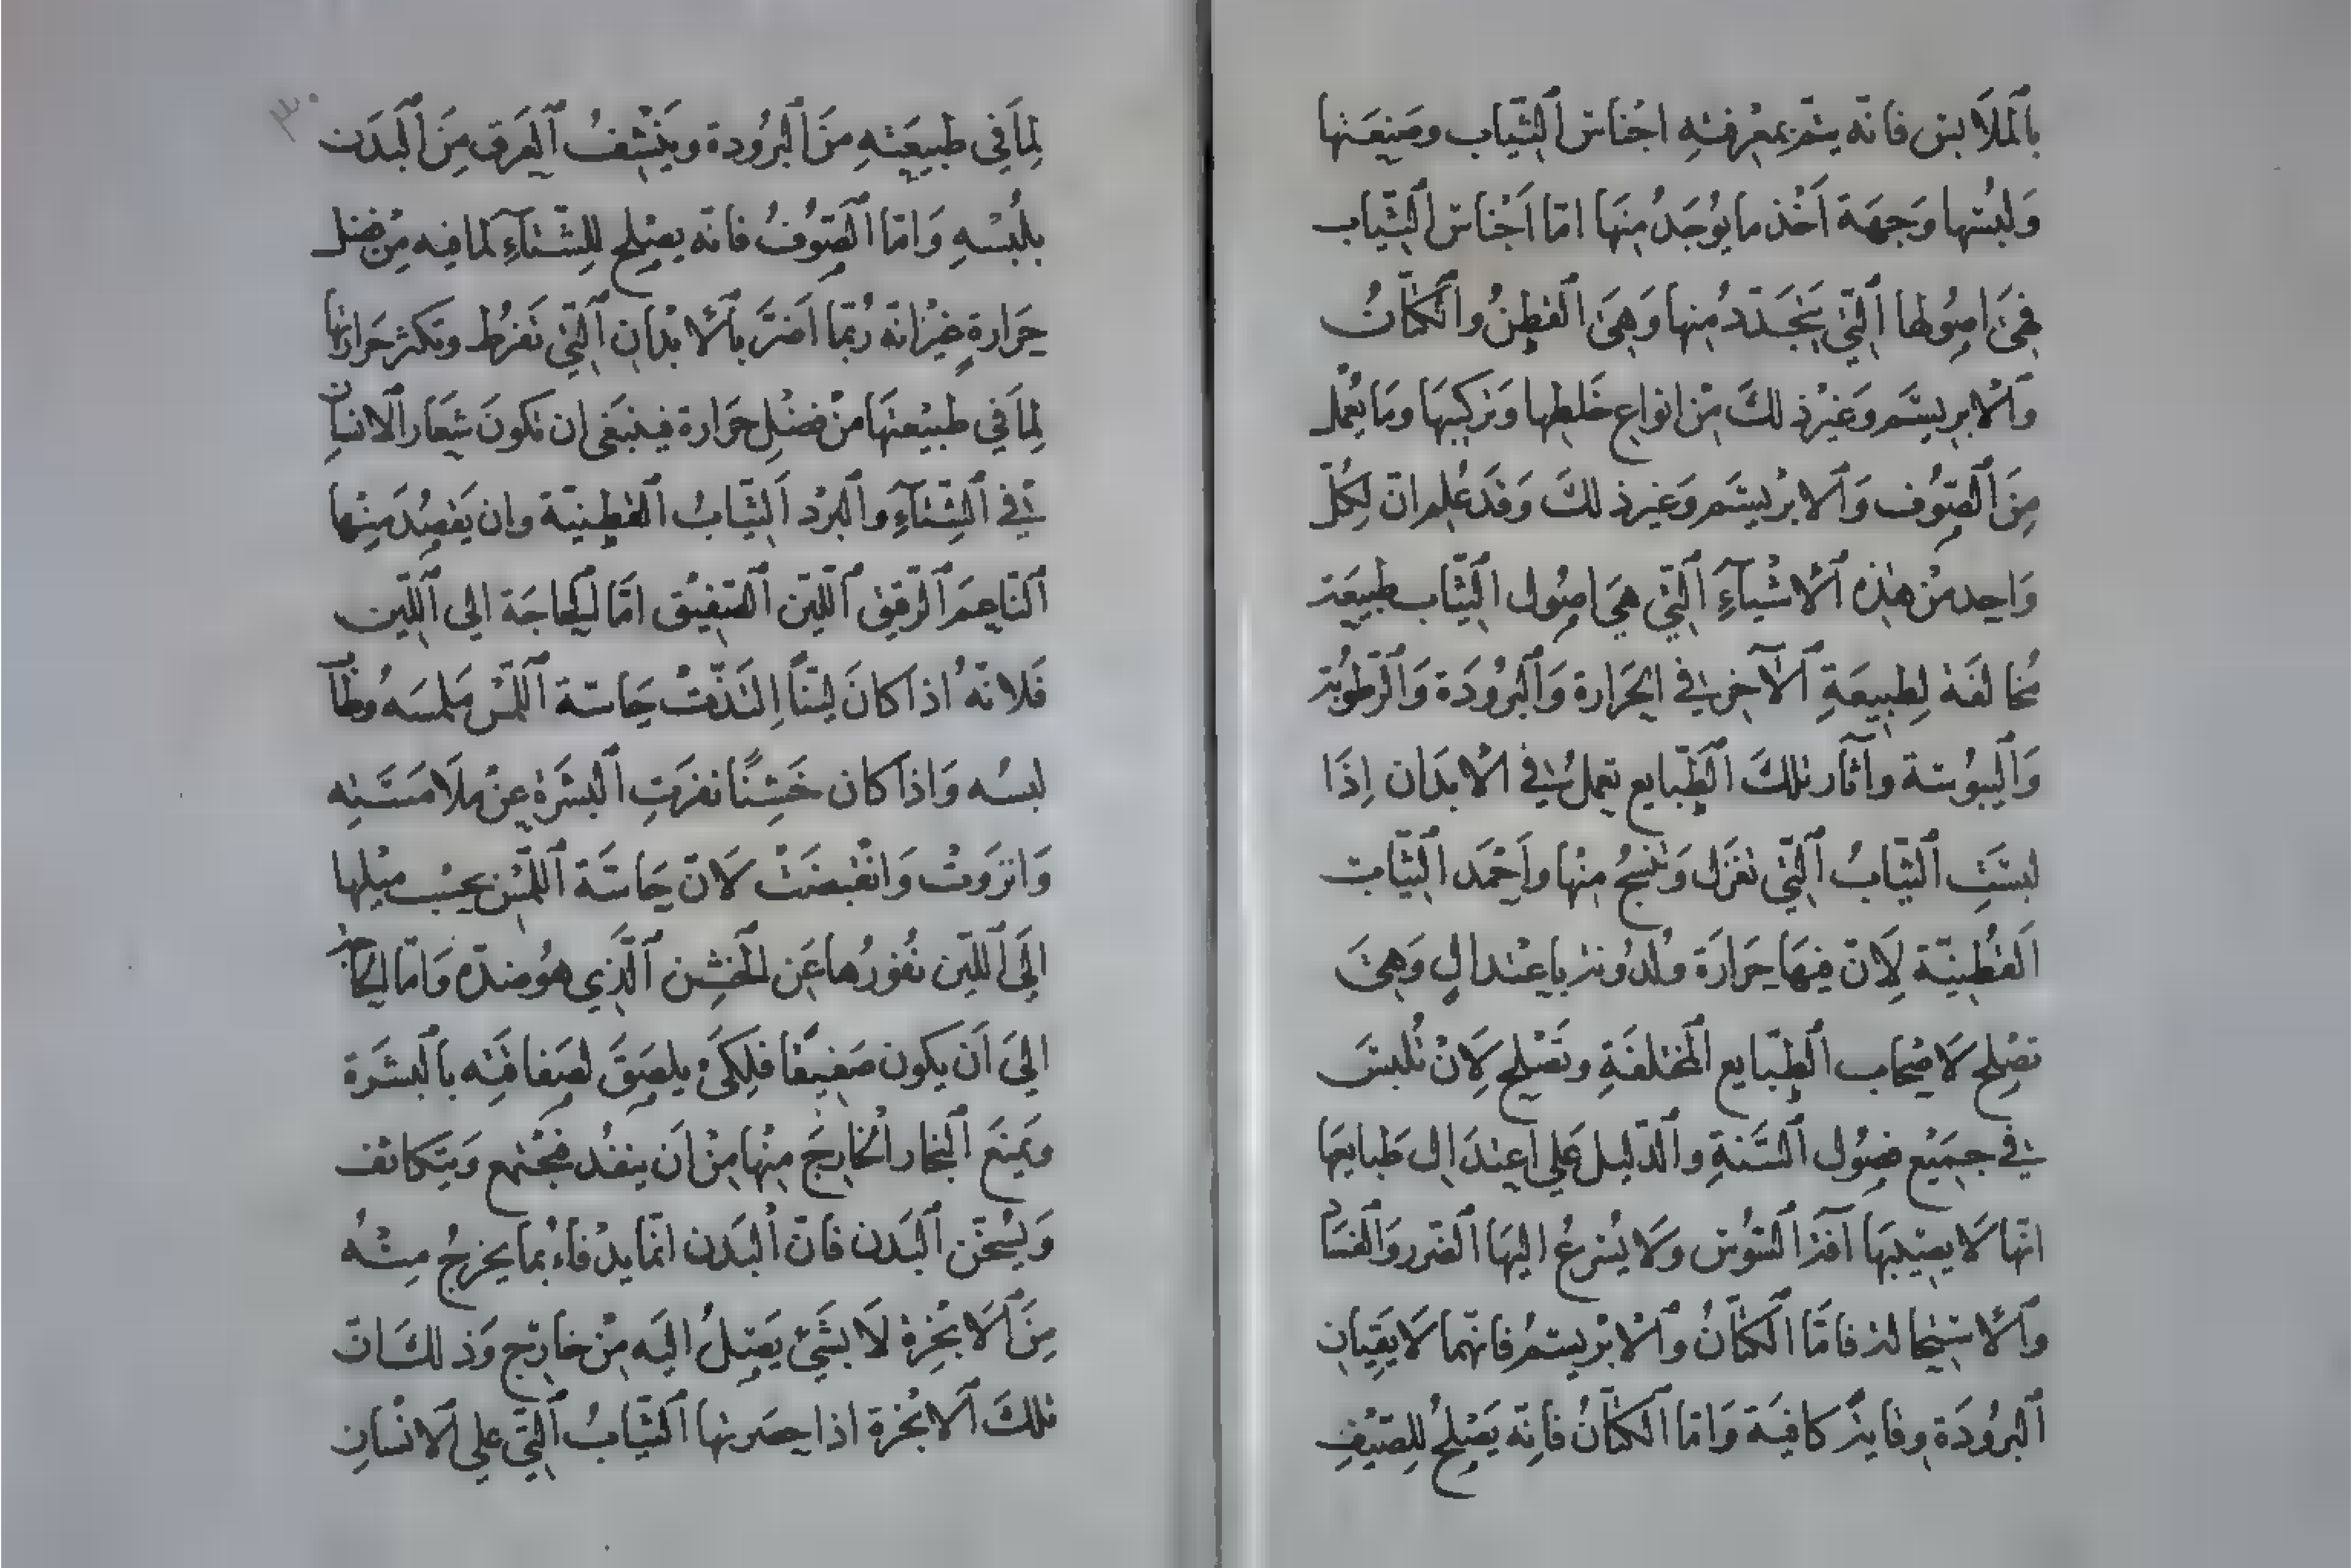 بِالْمَلَابس فانّه يتمّ بمعرفتهِ اجْنَاس الثّياب وصَنعَتها
وَلبْسها وَجهَة اَخْذ ما يُوجَدُ مِنهَا امّا اَجْناس الثّياب
فهىَ اصُولها الّتي يَتجَدّدُ منها وَهىَ القطنُ والكتّانُ
والابريسَم وَغيرْ ذلكَ مِن انواع خَلطِها وَتركيبهَا ومَا يُعمَل
مِنَ الصّوف وَالابرْيسَم وَغير ذلكَ وَقَد عُلم انّ لِكُلّ
وَاحِد مِنْ هٰذه الاشْياءِ الّتي هيَ اصُول الثّياب طبيعَة
مُخالفَة لِطبيعَةِ الآخر في الحَرارة وَالبرُودَة وَالرّطوبَة
وَاليبُوسَة وآثار تلكَ الطّبايع تعملُ في الابدَان اِذَا
لبسَتِ الثّيابُ الّتي تغزَل وَتنسجُ مِنْها واَحْمَد الثّياب
القُطنيّة لِاَنّ فيهَا حَرَارَة ولدُونة باعتدالٍ وَهىَ
تصْلح لَاصْحاب الطّبايع المختلفَةِ وتَصْلح لِاَنْ تُلبسَ
في جمَيْع فصُول السَّنةِ والدّليل عَلى اعتدَال طبَايعهَا
انّها لَا يصيبهَا آفة السّوس وَلَا يُسْرعُ اليهَا الضّرر وَالفسَاد
وَالاسْتحالة فامّا الكتّانُ والابْريسمُ فانّهما لَا يقِيَانِ
البرُودَة وقايةً كافيَة وَامّا الكتّانُ فانّه يَصْلحُ لِلصّيْفِ
لِمَا في طبيعَتهِ مِنَ البرُودة وينْشِفُ العَرق مِنَ البَدَن
بلُبْسهِ وَامّا الصّوُفُ فانّه يصْلح لِلشّتآءِ لما فيه مِنْ فضل
حَرارةٍ غيْر انّه ربّما اَضرَّ بالابْدان الّتي تفرُط وتكثر حَرارتها
لِمَا في طبيْعتهَا مِنْ فضْلِ حَرارة فينبَغى ان تكونَ شعَار الانسان
في الشّتَآءِ وَالبرْد الثّيابُ القطنيّة وان يَقصِدَ مِنْها
النّاعِمَ الرّقيق اللّيّن الصّفيْق امّا لِحاجَة الى اللّين
فَلانّهُ اذا كانَ ليّناً اِلتَذّتْ حَاسّة اللّمْس مَلمسَهُ وطَابَ
لبسُه وَاذا كان خَشِنًا نفرَتِ البَشَرَة عنْ ملَامَسَته
وَانزَوتْ وَانْقبضَتْ لَانّ حَاسّة اللّمْس بحسْب ميْلها
الىَ اللّين نفُورُها عَن الخشِن الّذي هوُ ضدّه وَامّا الحاجة
الىَ اَن يكون صَفيقًا فلِكَىْ يلصِقَ لصَفاقتِه بالبَشَرَة
وَيمنعَ البخار الخارجَ مِنْها مِنْ اَن ينفُد فيَجْتمع وَيتَكاثف
وَيُسَخّن البَدن فانّ البَدن انمّا يدْفاءُ بمَا يخرجُ مِنْهُ
مِنَ الابْخِرة لَا بشَىْ يَصِلُ اليَه مِنْ خارج وَذلكَ انّ
تلكَ الابْخرة اذا حصَرتها الثّيابُ الّتي على الانْسَانِ
٣٠